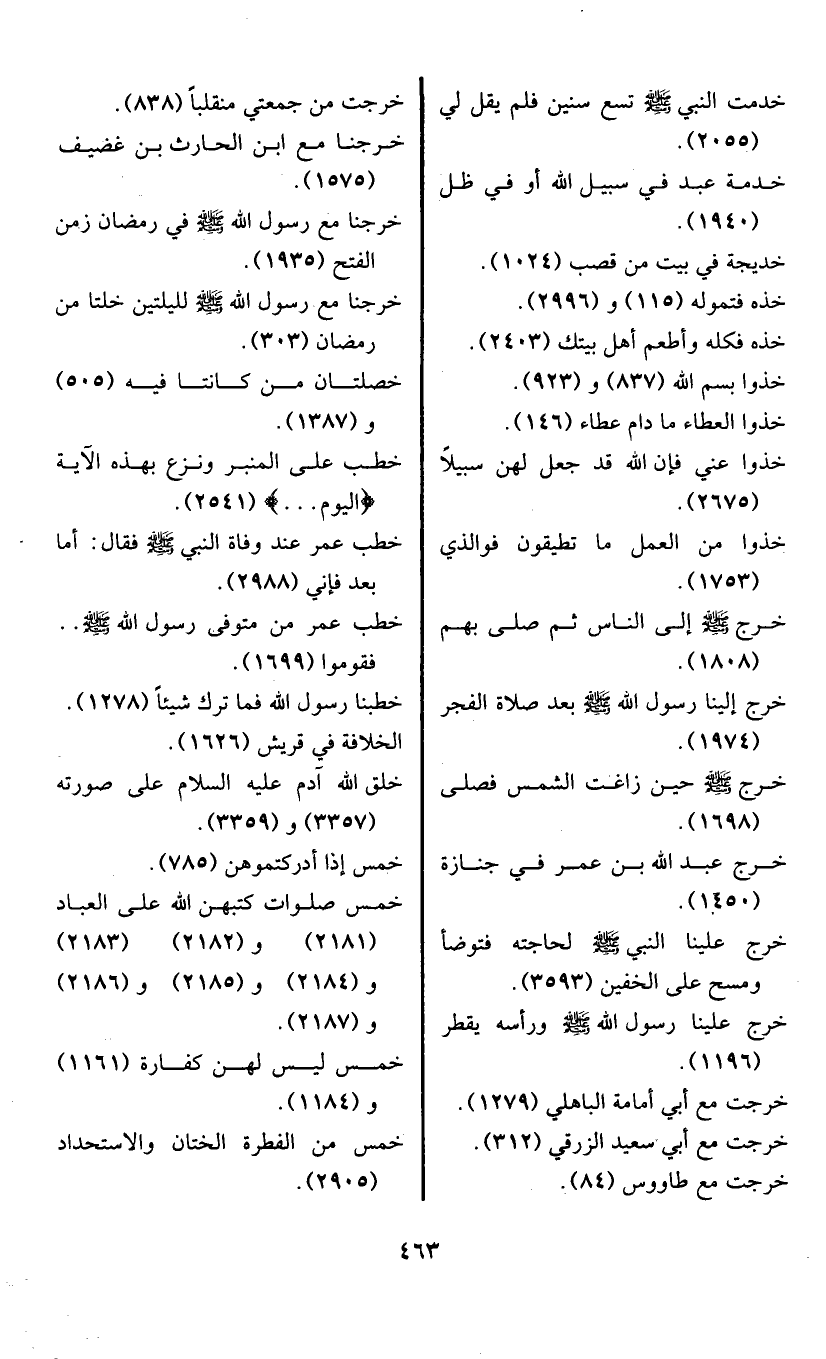 خدمت النبي ﷺ تسع سنين فلم يقل لي
(٢٠٥٥).
خدمة عبد في سبيل الله أو في ظل
(١٩٤٠).
خديجة في بيت من قصب (١٠٢٤).
خذه فتموله (١١٥) و (٢٩٩٦).
خذه فكله وأطعم أهل بيتك (٢٤٠٣).
خذوا بسم الله (٨٣٧) و (٩٢٣).
خذوا العطاء ما دام عطاء (١٤٦).
خذوا عني فإن الله قد جعل لهن سبيلاً
(٢٦٧٥).
خذوا من العمل ما تطيقون فوالذي
(١٧٥٣).
خرج ﷺ إلى الناس ثم صلى بهم
(١٨٠٨).
خرج إلينا رسول الله ﷺ بعد صلاة الفجر
(١٩٧٤).
خرج ﷺ حين زاغت الشمس فصلى
(١٦٩٨).
خرج عبد الله بن عمر في جنازة
(١٤٥٠).
خرج علينا النبي ﷺ لحاجته فتوضأ
ومسح على الخفين (٣٥٩٣).
خرج علينا رسول الله ﷺ ورأسه يقطر
(١١٩٦).
خرجت مع أبي أمامة الباهلي (١٢٧٩).
خرجت مع أبي سعيد الزرقي (٣١٢).
خرجت مع طاووس (٨٤).
خرجت من جمعتي منقلباً (٨٣٨).
خرجنا مع ابن الحارث بن غضيف
(١٥٧٥).
خرجنا مع رسول الله ﷺ في رمضان زمن
الفتح (١٩٣٥).
خرجنا مع رسول الله ﷺ لليلتين خلتا من
رمضان (٣٠٣).
خصلتان من كانتا فيه (٥٠٥)
و (١٣٨٧).
خطب على المنبر ونزع بهذه الآية
﴿اليوم...﴾ (٢٥٤١).
خطب عمر عند وفاة النبي ﷺ فقال: أما
بعد فإني (٢٩٨٨).
خطب عمر من متوفى رسول الله ﷺ..
فقوموا (١٦٩٩).
خطبنا رسول الله فما ترك شيئاً (١٢٧٨).
الخلافة في قريش (١٦٢٦).
خلق الله آدم عليه السلام على صورته
(٣٣٥٧) و (٣٣٥٩).
خمس إذا أدركتموهن (٧٨٥).
خمس صلوات كتبهن الله على العباد
(٢١٨١) و (٢١٨٢) (٢١٨٣)
و (٢١٨٤) و (٢١٨٥) و (٢١٨٦)
و (٢١٨٧).
خمس ليس لهن كفارة (١١٦١)
و (١١٨٤).
خمس من الفطرة الختان والاستحداد
(٢٩٠٥).
٤٦٣